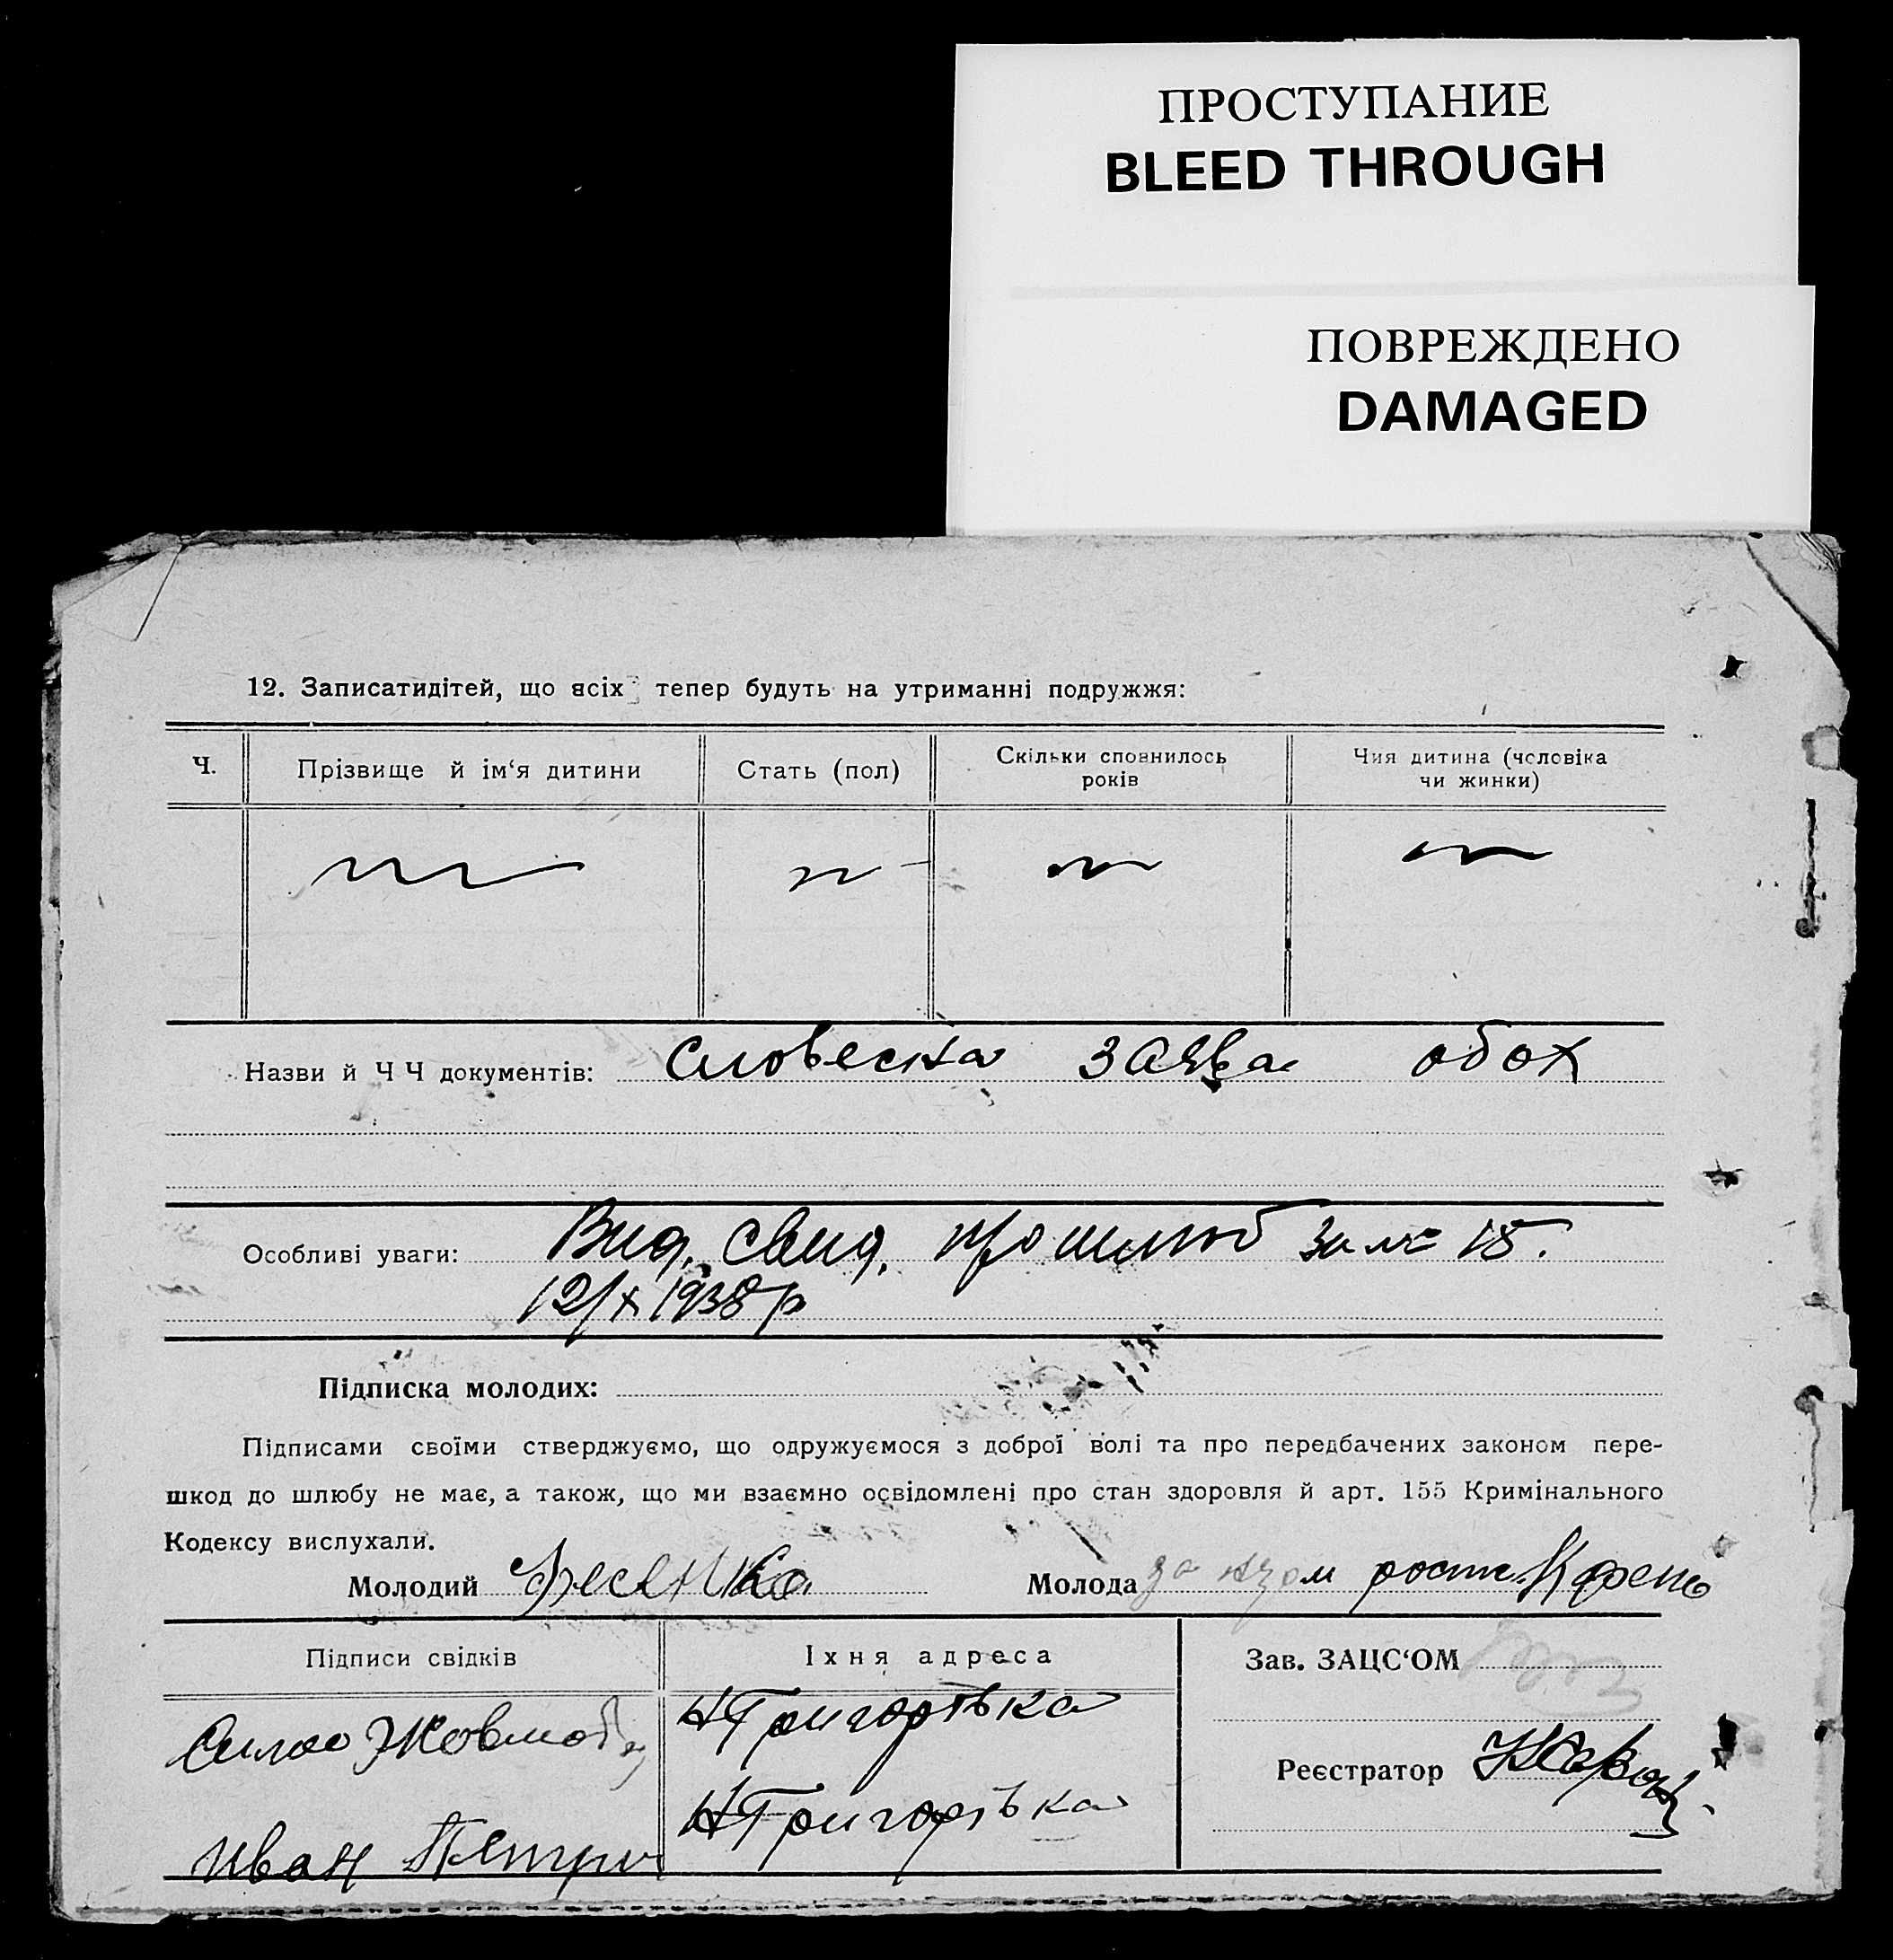 ПРОСТУПАНИЕ
BLEED THROUGH
ПОВРЕЖДЕНО
DAMAGED
12. Записатидітей, що всіх тепер будуть на утриманні подружжя:
Ч. Прізвище й ім‘я дитини Стать (пол) Скільки сповнилось років Чия дитина (чоловіка чи жинки)
Назви й Ч Ч документів: Словесна заява обох
Особливі уваги: Вид. свид. про шлюб за № 15.
12/X 1938 р
Підписка молодих:
Підписами своїми стверджуємо, що одружуємося з доброї волі та про передбачених законом пере-
шкод до шлюбу не має, а також, що ми взаємно освідомлені про стан здоровля й арт. 155 Кримінального
Кодексу вислухали.
Молодий Фесенко Молода
Підписи свідків Іхня адреса Зав. ЗАЦС‘ОМ
НГригорівка
Реєстратор
Иван НГригорівка